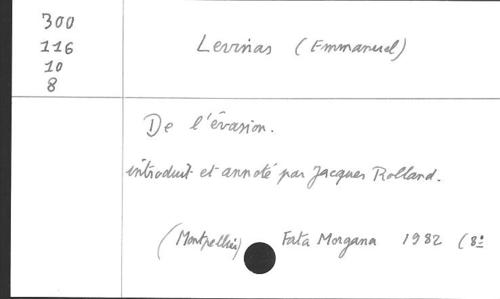 300
116
10
8
Levinas (Emmanuel)
De l'évasion.
introduit et annoté par Jacques Rolland.
(Montpellier) Fata Morgana 1982 (8º